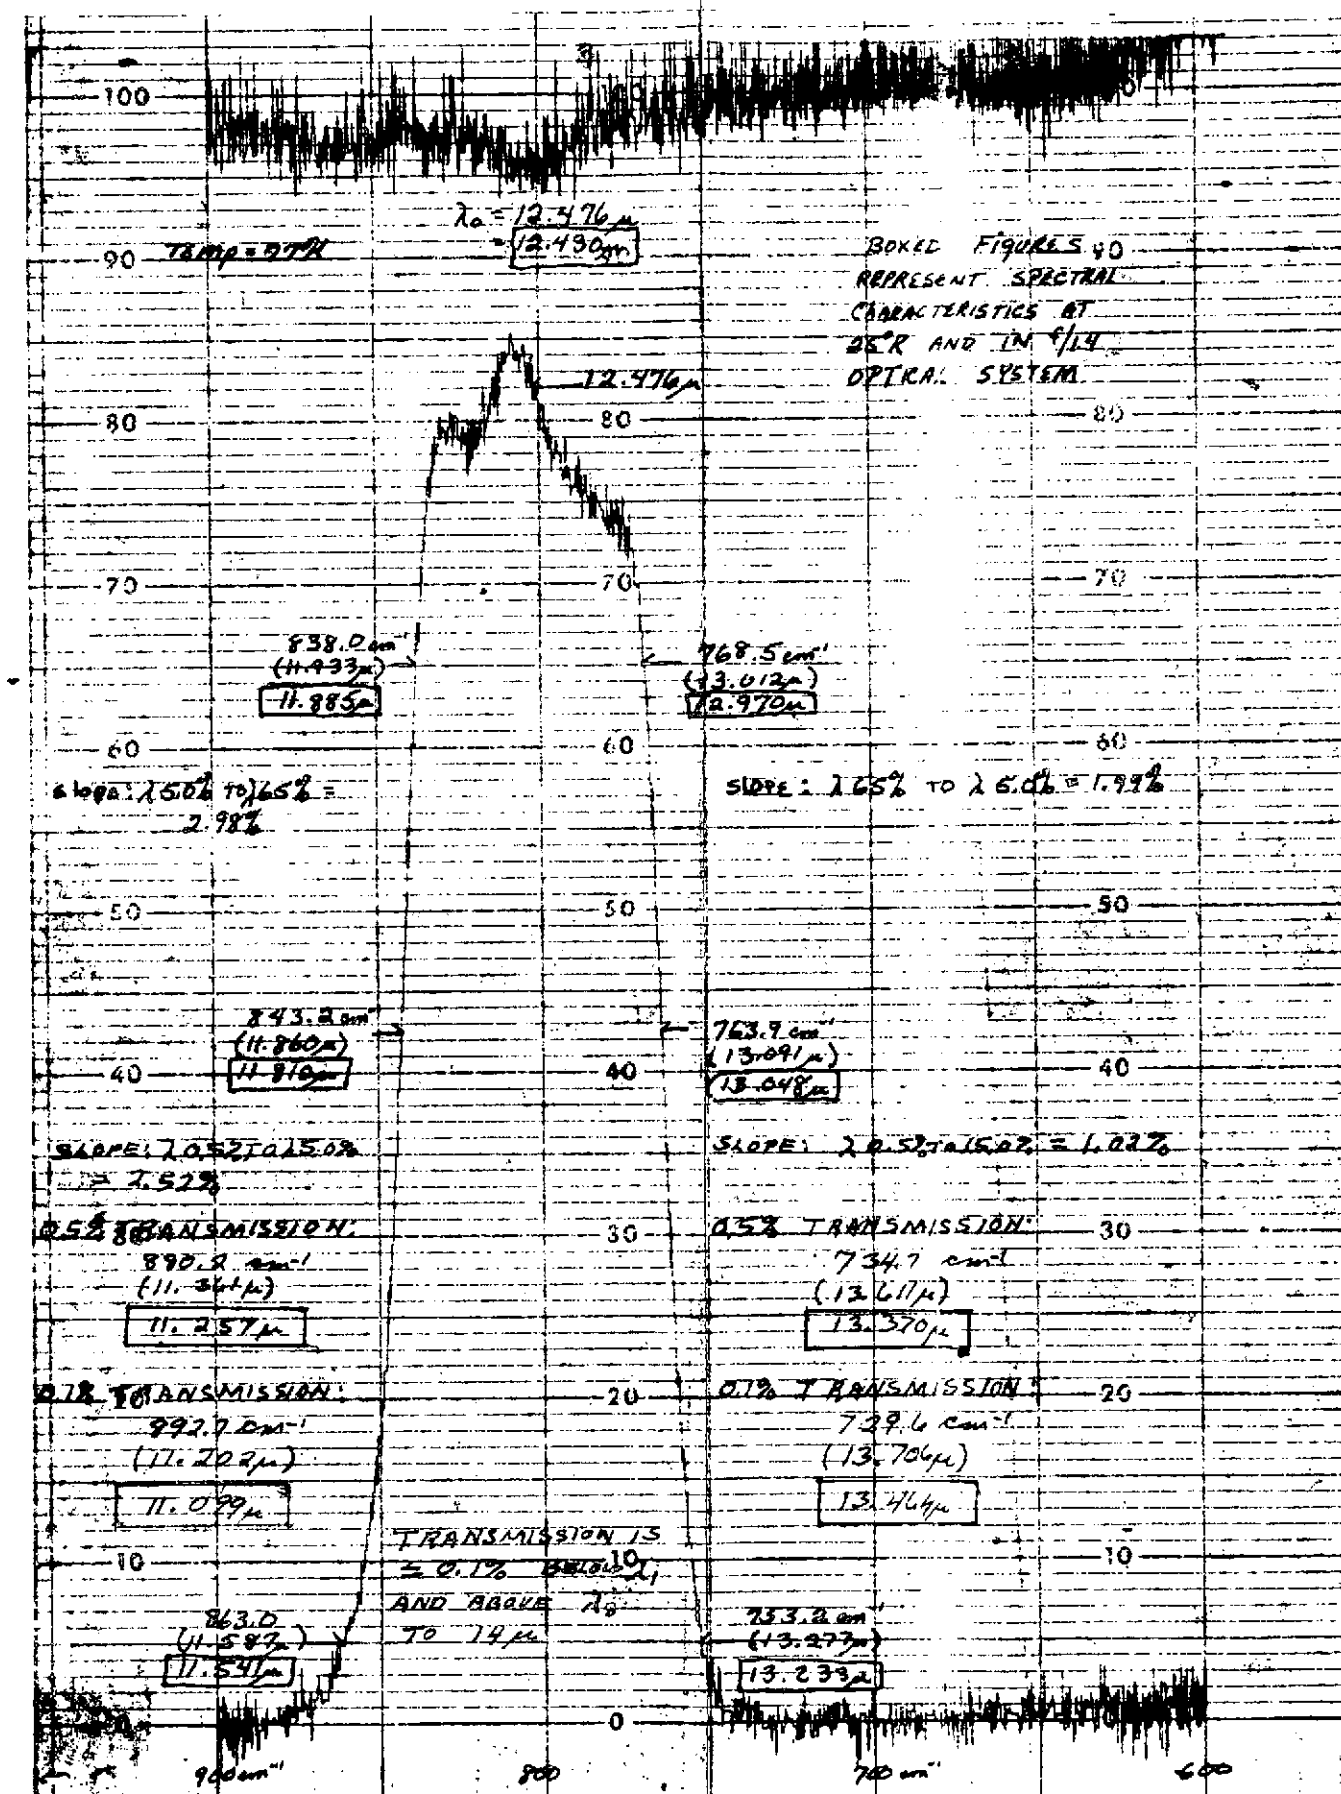 100
λ₀ = 12.476 μ
= 12.430 μ
90
BOXED FIGURES 90
REPRESENT SPECTRAL
CHARACTERISTICS AT
25°R AND IN f/1.4
OPTICAL SYSTEM
12.476 μ
80
80
80
70
70
70
838.0 cm⁻¹
(11.933 μ)
11.885 μ
768.5 cm⁻¹
(13.012 μ)
12.970 μ
60
60
60
slope: λ5.0% TO λ65% =
2.98%
SLOPE: λ65% TO λ 5.0% = 1.99%
50
50
50
843.2 cm⁻¹
(11.860 μ)
11.810 μ
763.9 cm⁻¹
(13.091 μ)
13.048 μ
40
40
40
SLOPE: λ0.5% TO λ5.0%
= 2.52%
SLOPE: λ 0.5% TO λ5.0% = 1.02%
0.5% TRANSMISSION:
0.5% TRANSMISSION:
30
30
cm⁻¹
11.257 μ
734.7 cm⁻¹
(13.611 μ)
13.370 μ
0.1% TRANSMISSION:
0.1% TRANSMISSION:
20
20
20
892.7 cm⁻¹
(11.202 μ)
11.099 μ
729.6 cm⁻¹
(13.706 μ)
13.464 μ
TRANSMISSION IS
≤ 0.1% BELOW λ₁
AND ABOVE
TO 14 μ
10
10
10
863.0
(11.587 μ)
11.541 μ
753.2 cm⁻¹
(13.277 μ)
13.233 μ
0
0
900 cm⁻¹
800
700 cm⁻¹
600